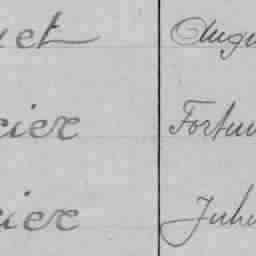 uet Augu
cier Fortun
cier Jule